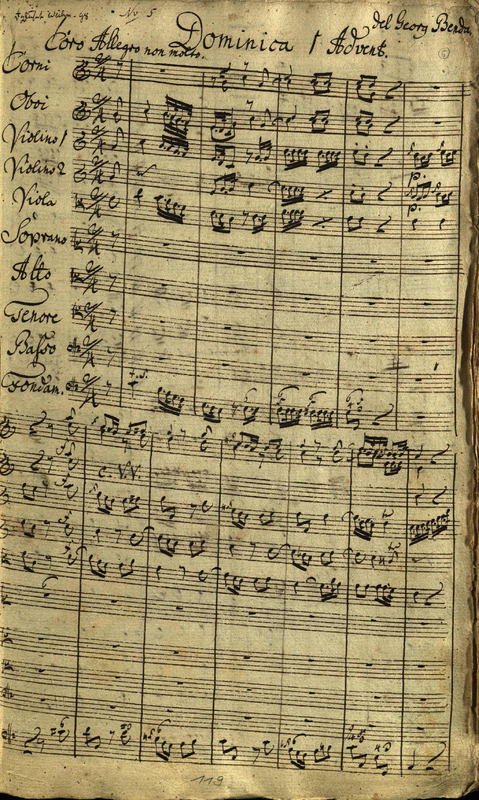 No 5
del Georg Benda
Coro Allegro non molto. Dominica 1 Advent.
Corni
Oboi
Violino 1
Violino 2
Viola
Soprano
Alto
Tenore
Basso
Fondam.
p.
p.
C. V.V.
119